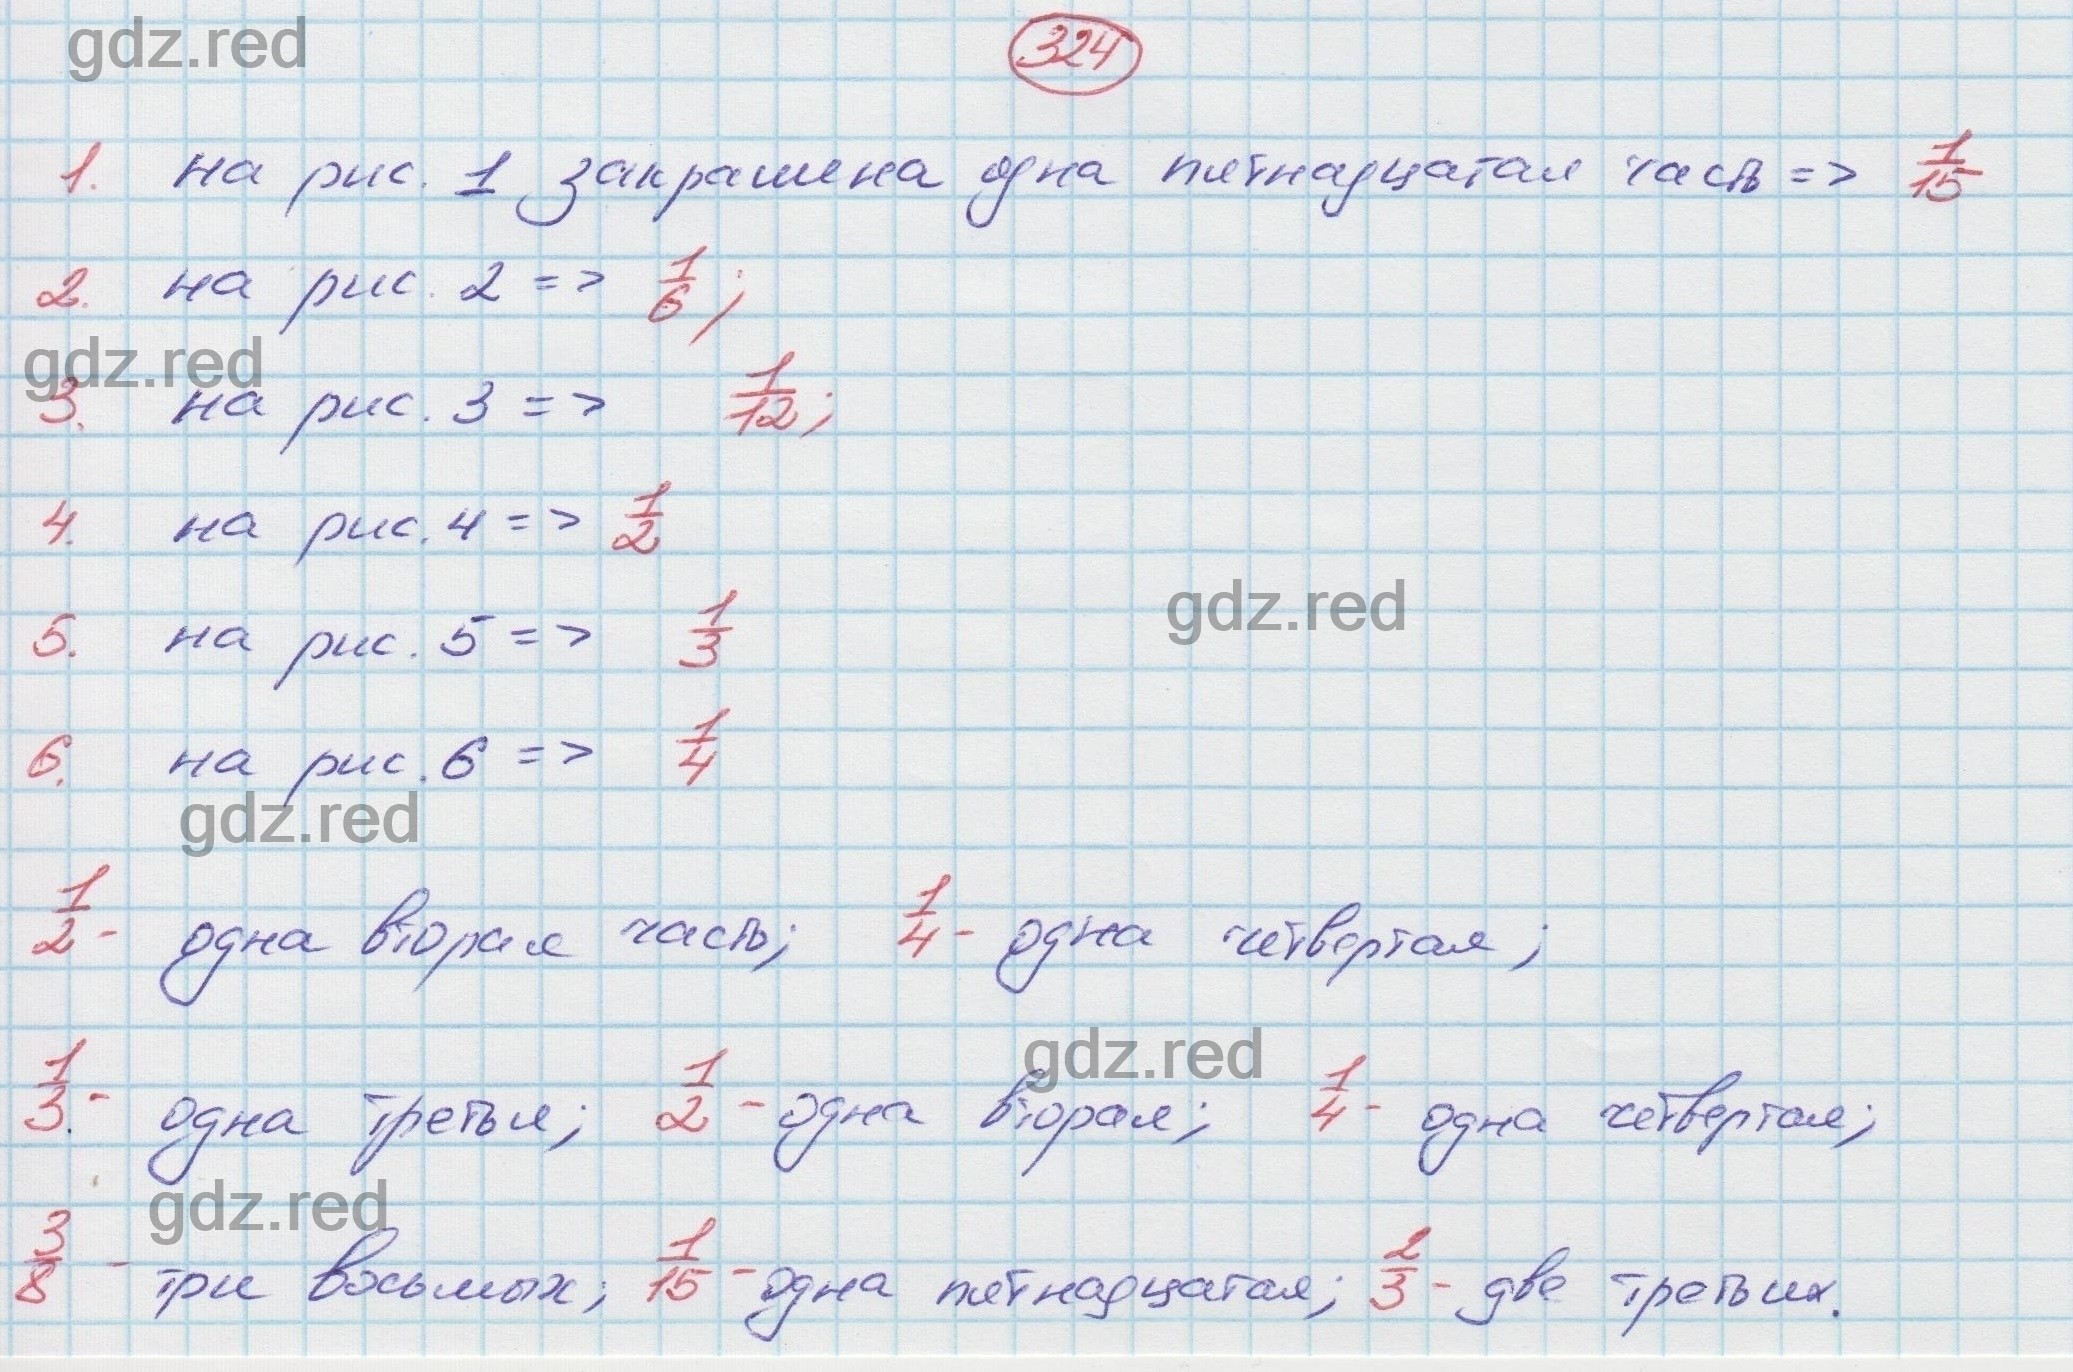 gdz.red
324
1. на рис. 1 закрашена одна пятнадцатая часть => 1/15
2. на рис. 2 => 1/6;
gdz.red
3. на рис. 3 => 1/12;
4. на рис. 4 => 1/2
gdz.red
5. на рис. 5 => 1/3
6. на рис. 6 => 1/4
gdz.red
1/2 - одна вторая часть; 1/4 - одна четвертая;
gdz.red
1/3 - одна третья; 1/2 - одна вторая; 1/4 - одна четвертая;
gdz.red
3/8 - три восьмых; 1/15 - одна пятнадцатая; 2/3 - две третьих.